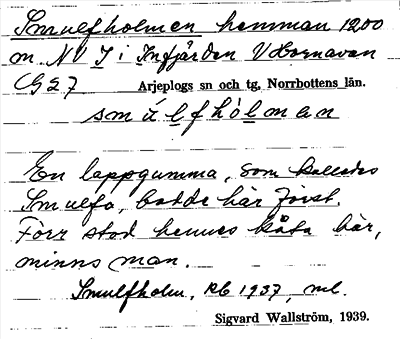 Smulfholmen hemman 1200
m. NV I i Infjärden V Hornavan
G27 Arjeplogs sn och tg, Norrbottens län.
smúlfhòlman
En lappgumma, som kallades
Smulfa, bodde här först.
Förr stod hennes kåta här,
minns man.
Smulfholm, Rb 1937, ml.
Sigvard Wallström, 1939.